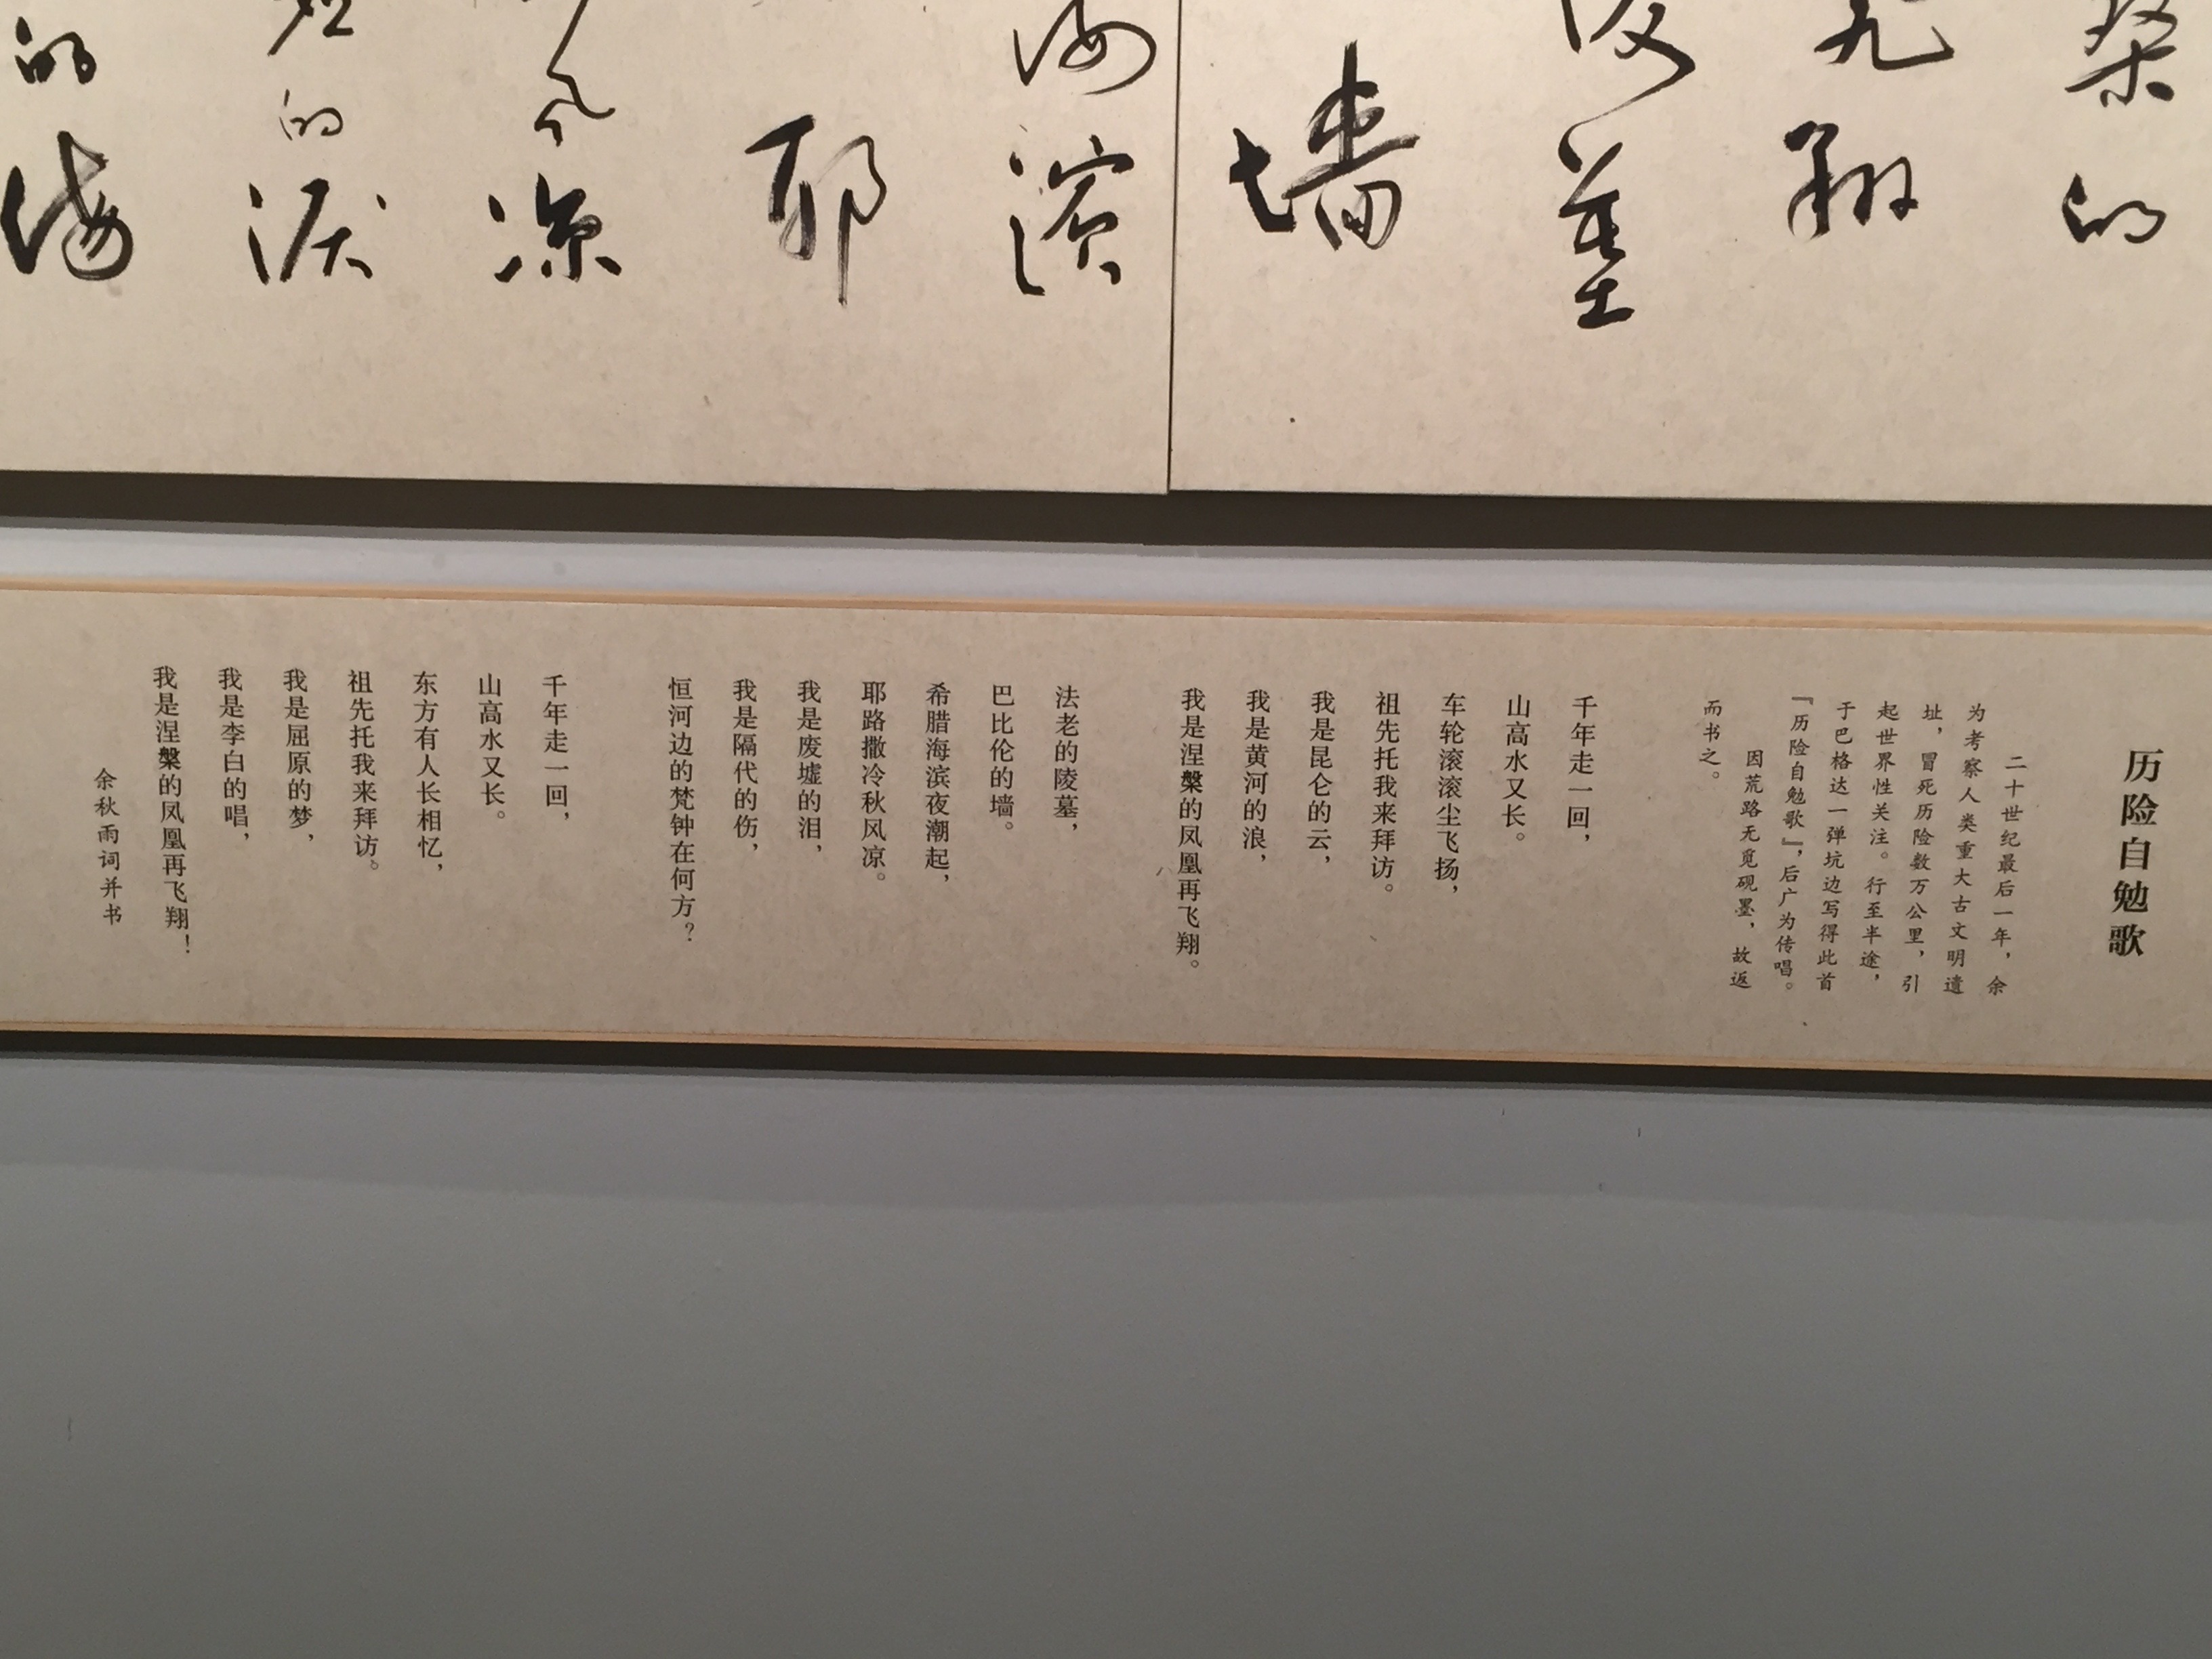 桑的
翔
墓
墙
海滨
耶
风凉
的泪
的伤
历险自勉歌
二十世纪最后一年，余
为考察人类重大古文明遗
址，冒死历险数万公里，引
起世界性关注。行至半途，
于巴格达一弹坑边写得此首
『历险自勉歌』，后广为传唱。
因荒路无觅砚墨，故返
而书之。
千年走一回，
山高水又长。
车轮滚滚尘飞扬，
祖先托我来拜访。
我是昆仑的云，
我是黄河的浪，
我是涅槃的凤凰再飞翔。
法老的陵墓，
巴比伦的墙。
希腊海滨夜潮起，
耶路撒冷秋风凉。
我是废墟的泪，
我是隔代的伤，
恒河边的梵钟在何方？
千年走一回，
山高水又长。
东方有人长相忆，
祖先托我来拜访。
我是屈原的梦，
我是李白的唱，
我是涅槃的凤凰再飞翔！
余秋雨词并书